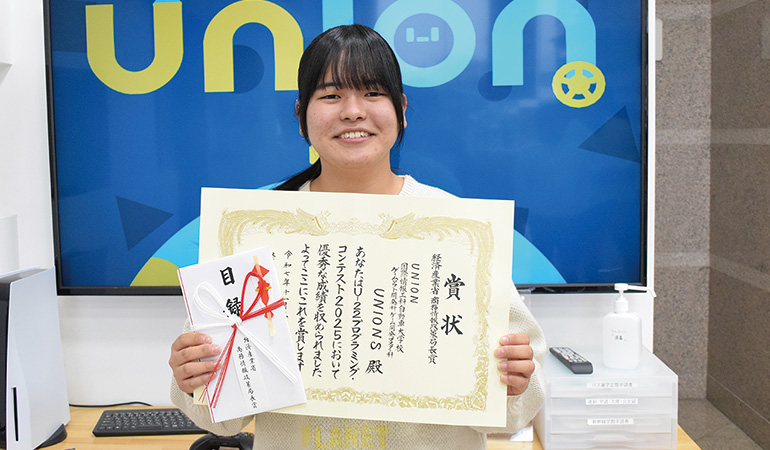 union
賞状
経済産業省 商務情報政策局長賞
UNION
国際情報工科自動車大学校
UNIONS 殿
あなたはU-22プログラミング・
コンテスト2025において
優秀な成績を収められました
よってここにこれを賞します
令和七年十一月
目録
経済産業省
商務情報政策局長賞
PLANET